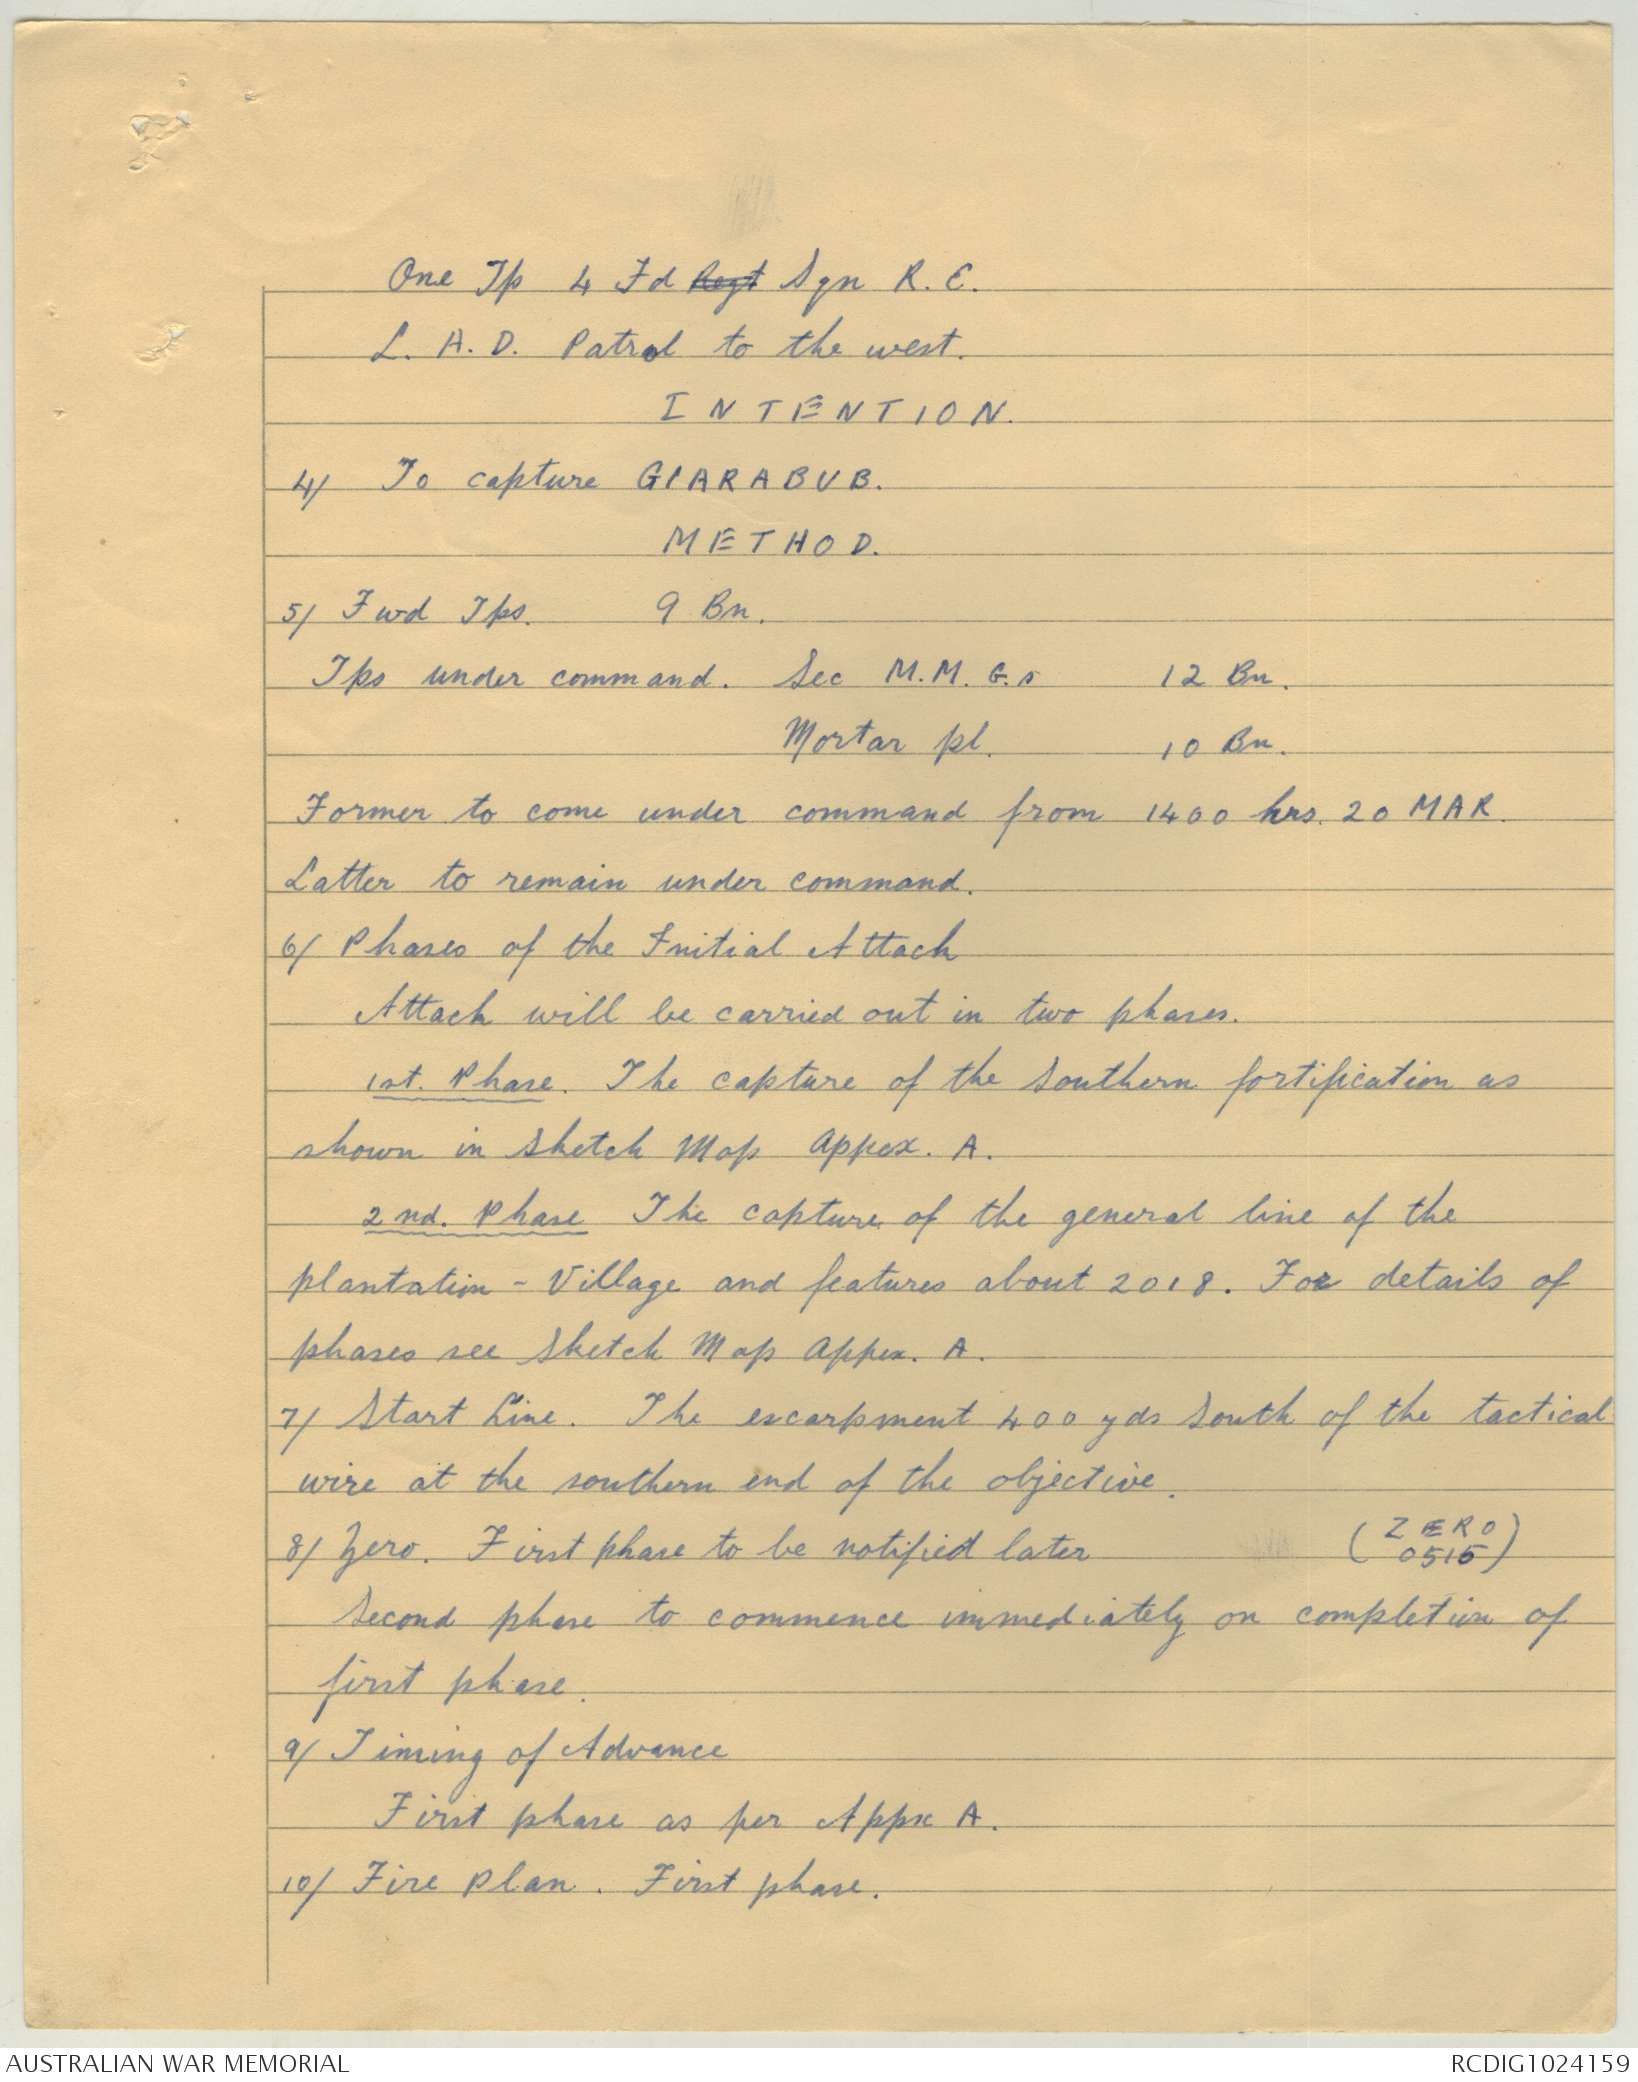 One Tp 4 Fd Regt Sqn R.E.
L.A.D. Patrol to the west.
INTENTION.
4/ To capture GIARABUB.
METHOD.
5/ Fwd Tps. 9 Bn.
Tps under command. Sec M.M.G.s 12 Bn.
Mortar pl. 10 Bn.
Former to come under command from 1400 hrs. 20 MAR.
Latter to remain under command.
6/ Phases of the Initial Attack
Attack will be carried out in two phases.
1st. Phase. The capture of the Southern fortification as
shown in Sketch Map Appex. A.
2nd. Phase The capture of the general line of the
plantation - Village and features about 2018. For details of
phases see Sketch Map Appex. A.
7/ Start Line. The escarpment 400 yds South of the tactical
wire at the southern end of the objective.
8/ Zero. First phase to be notified later (ZERO
0515)
Second phase to commence immediately on completion of
first phase.
9/ Timing of Advance
First phase as per Appx A.
10/ Fire Plan. First phase.
AUSTRALIAN WAR MEMORIAL
RCDIG1024159